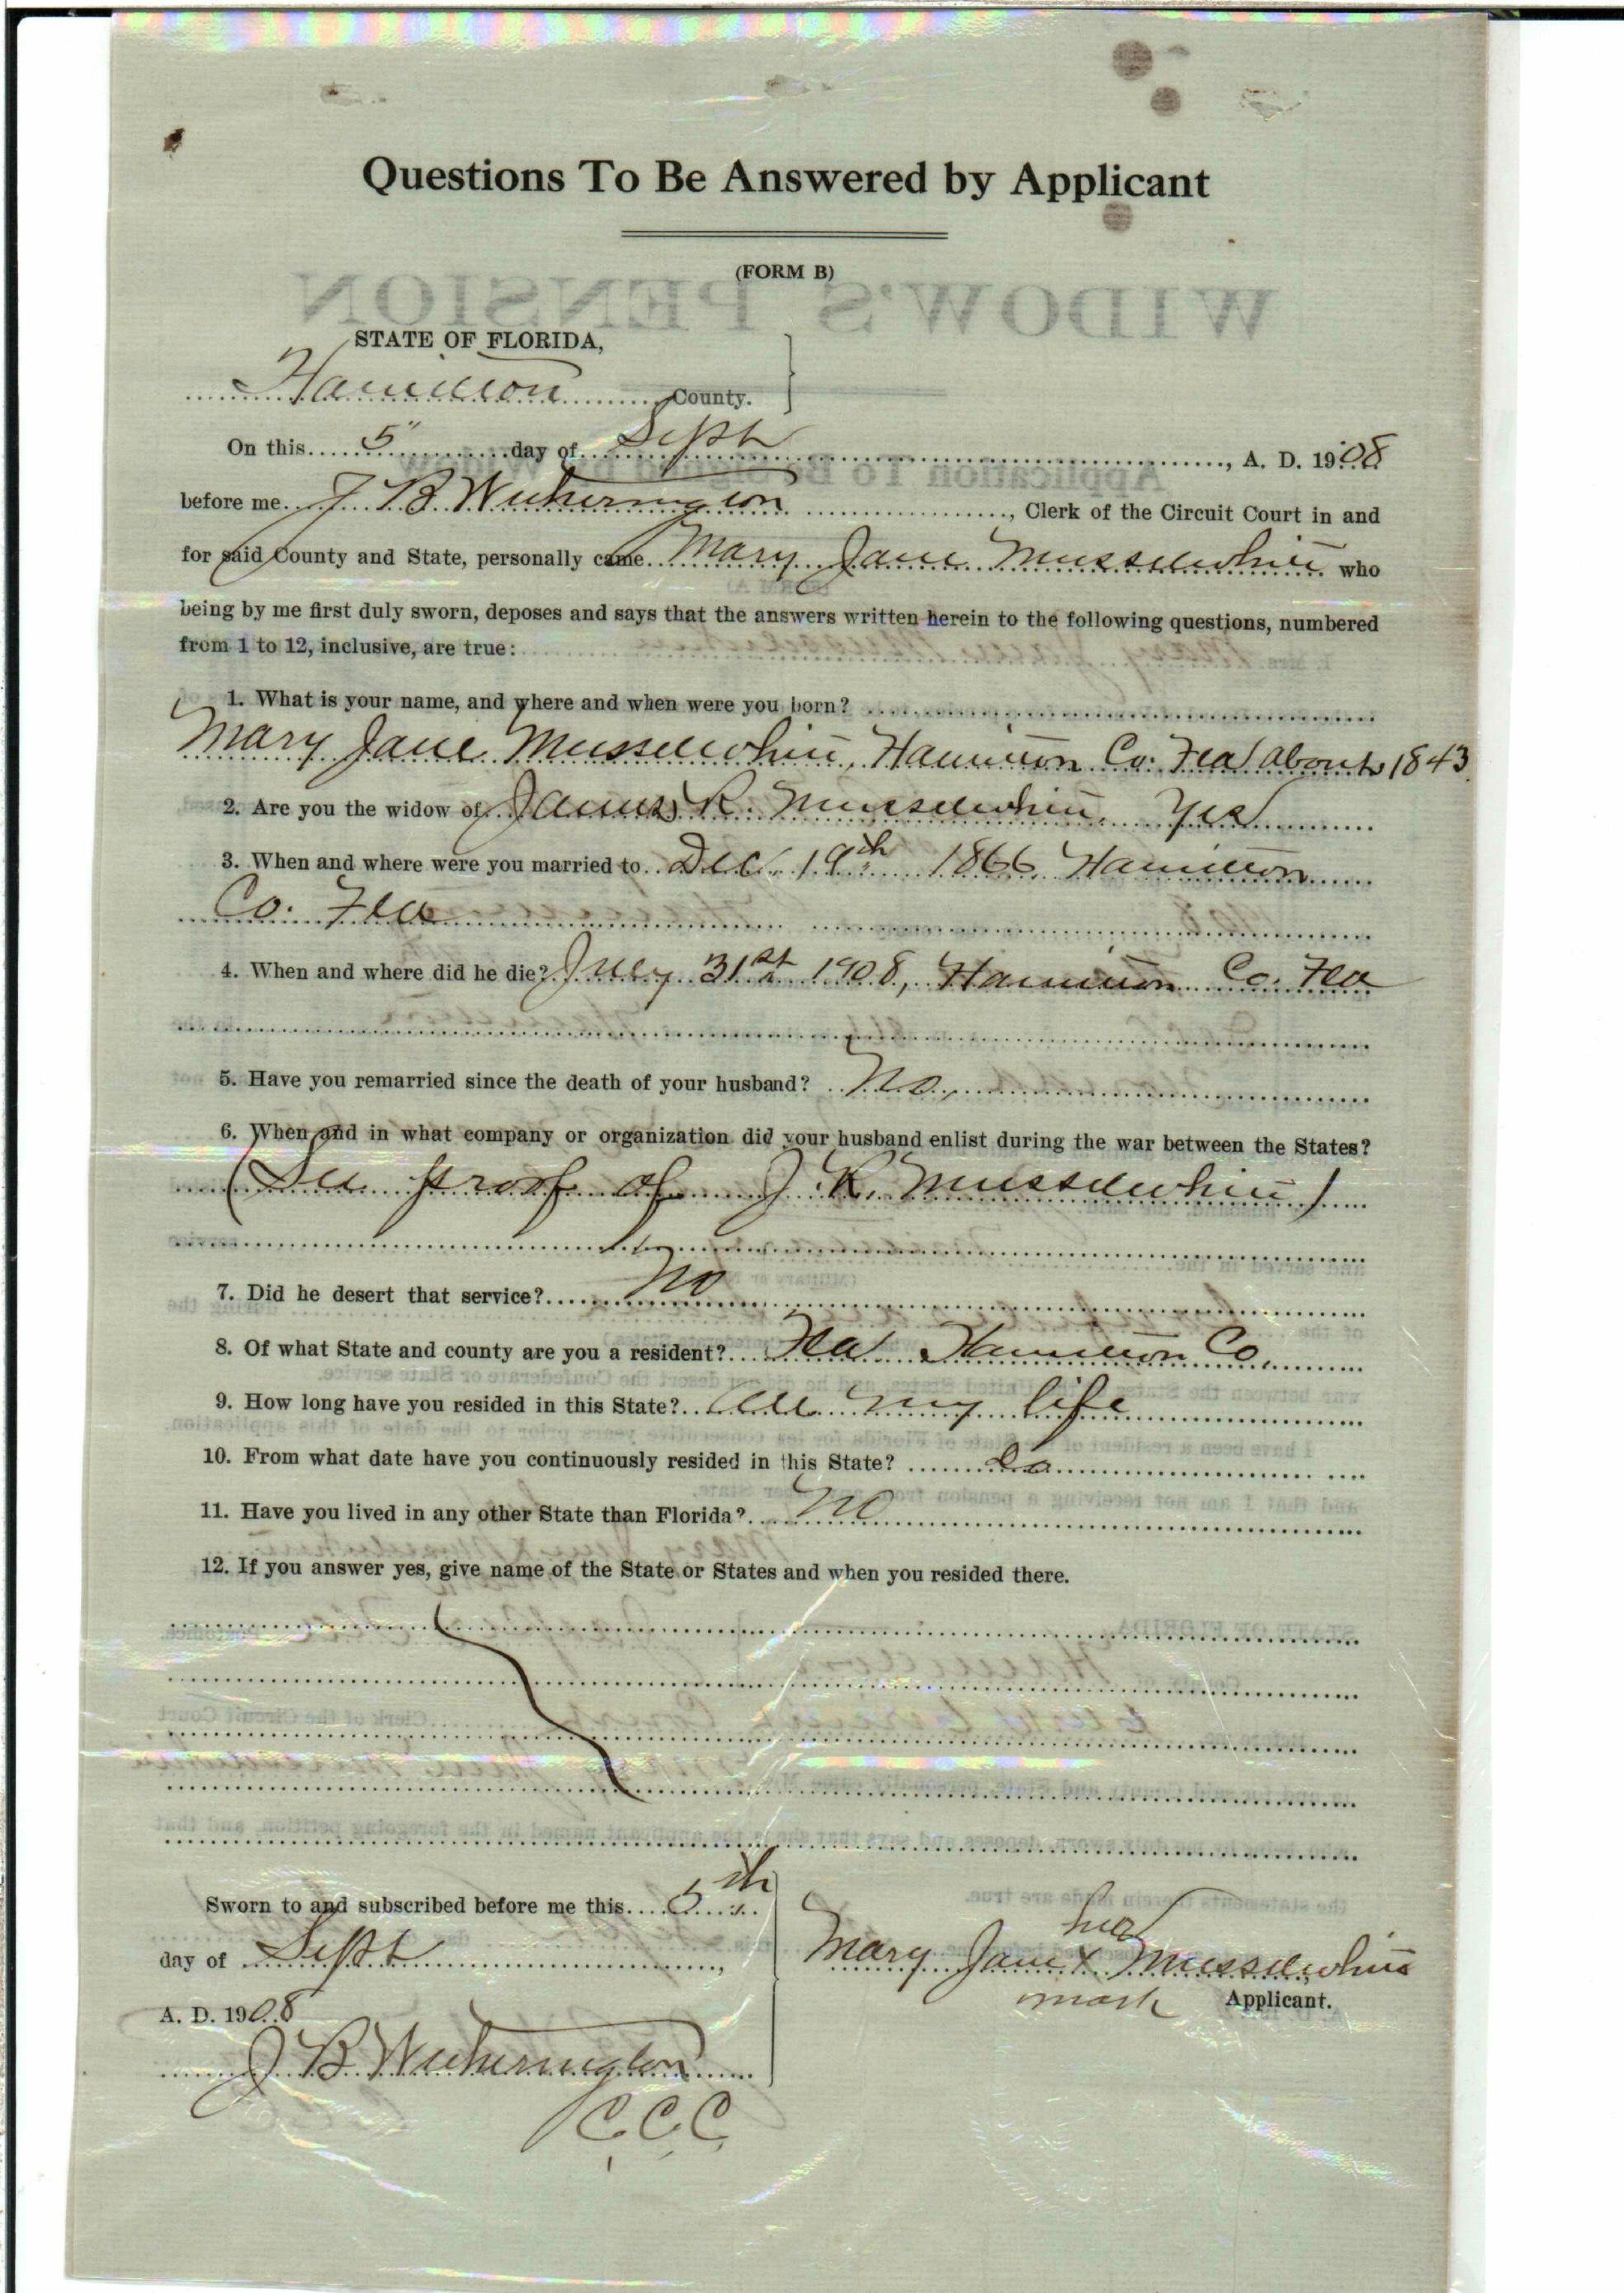 Questions To Be Answered by Applicant
(FORM B)
WIDOW'S PENSION
STATE OF FLORIDA,
Hamilton County.
On this 5" day of Sept, A. D. 1908
before me J B Witherington, Clerk of the Circuit Court in and
for said County and State, personally came Mary Jane Musselwhite who
being by me first duly sworn, deposes and says that the answers written herein to the following questions, numbered
from 1 to 12, inclusive, are true:
1. What is your name, and where and when were you born?
Mary Jane Musselwhite, Hamilton Co. Fla about 1843
2. Are you the widow of James R. Musselwhite. Yes
3. When and where were you married to Dec. 19th 1866 Hamilton
Co. Fla
4. When and where did he die? July 31st 1908, Hamilton Co. Fla
5. Have you remarried since the death of your husband? No.
6. When and in what company or organization did your husband enlist during the war between the States?
(See proof of J. R. Musselwhite)
7. Did he desert that service? No
8. Of what State and county are you a resident? Fla Hamilton Co.
9. How long have you resided in this State? All my life
10. From what date have you continuously resided in this State? Do
11. Have you lived in any other State than Florida? No
12. If you answer yes, give name of the State or States and when you resided there.
Sworn to and subscribed before me this 5th
day of Sept,
A. D. 1908
J B Witherington
C.C.C.
her
Mary Jane X Musselwhite
mark Applicant.